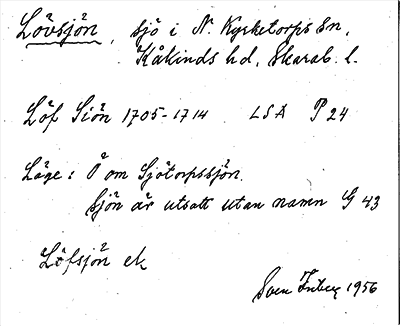 Lövsjön, sjö i N. Kyrketorps sn,
Kåkinds hd, Skarab. l.
Löf Siön 1705-1714 LSA P 24
Läge: Ö om Sjötorpssjön.
Sjön är utsatt utan namn G 43
Löfsjön ek
Sven 1956